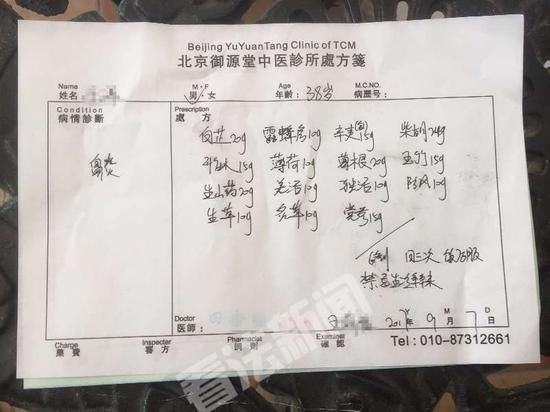 Beijing YuYuanTang Clinic of TCM
北京御源堂中医診所處方箋
Name
姓名:
M・F
男・女
Age
年齡: 38岁
M.C.NO.
病歷号:
Condition
病情診断
鼻炎
Prescription
處方
白芷20g 露蜂房10g 辛夷15g 柴胡24g
薄荷10g 葛根20g 玉竹15g
生山药20g 羌活10g 独活10g 防风10g
生草10g 党参15g
日三次 饭后服
禁忌生冷辛辣
Doctor
医師:
2017 Y 年 9 M 月 7 D 日
Charge
薬費
Inspecter
審方
Pharmacist
調剤
Examiner
確認
Tel: 010-87312661
看法新闻